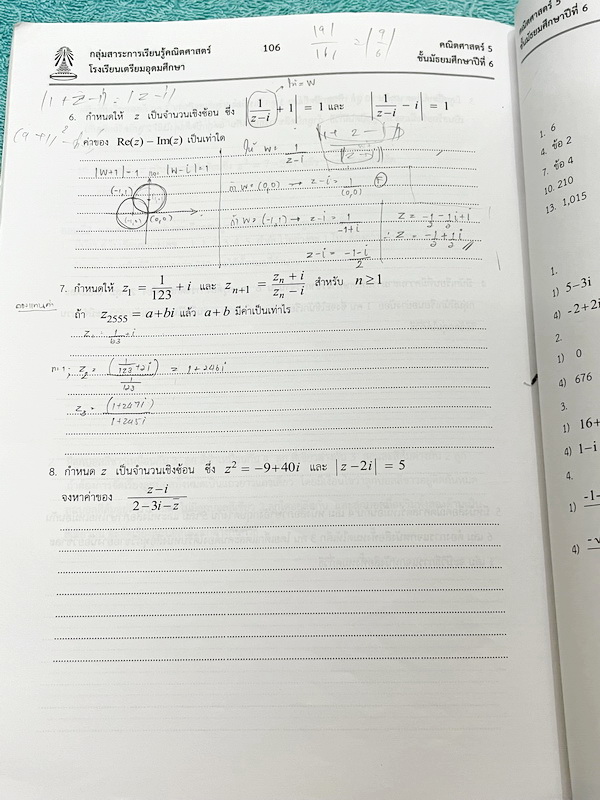 กลุ่มสาระการเรียนรู้คณิตศาสตร์ 106 คณิตศาสตร์ 5
โรงเรียนเตรียมอุดมศึกษา ชั้นมัธยมศึกษาปีที่ 6
|9|/|6| = |9/6|
ให้ = w
|1 + z - i| = |z - i|
6. กำหนดให้ z เป็นจำนวนเชิงซ้อน ซึ่ง |1/(z-i) + 1| = 1 และ |1/(z-i) - i| = 1
ค่าของ Re(z) − Im(z) เป็นเท่าใด
ให้ w = 1/(z-i)
|w+1| = 1 และ |w-i| = 1
(-1,1)
(-1,0) (0,0)
ถ้า w = (0,0) → z-i = 1/(0,0) F
ถ้า w = (-1,1) → z-i = 1/(-1+i)
z-i = (-1-i)/2
z = -1/2 - 1/2 i + i
∴ z = -1/2 + 1/2 i
7. กำหนดให้ z₁ = 1/123 + i และ zₙ₊₁ = (zₙ + i)/(zₙ − i) สำหรับ n ≥ 1
ลองแทนค่า
ถ้า z₂₅₅₅ = a + bi แล้ว a + b มีค่าเป็นเท่าไร
z₁ = 1/123 + i
n=1; z₂ = (1/123 + 2i)/(1/123) = 1 + 246i
z₃ = (1+247i)/(1+245i)
8. กำหนด z เป็นจำนวนเชิงซ้อน ซึ่ง z² = −9 + 40i และ |z − 2i| = 5
จงหาค่าของ (z − i)/(2 − 3i − z̄)
คณิตศาสตร์ 5
ชั้นมัธยมศึกษาปีที่ 6
1. 6
4. ข้อ 2
7. ข้อ 4
10. 210
13. 1,015
1.
1) 5−3i
4) −2+2i
2.
1) 0
4) 676
3.
1) 16+
4) 1−i
4.
1) −1−
4)